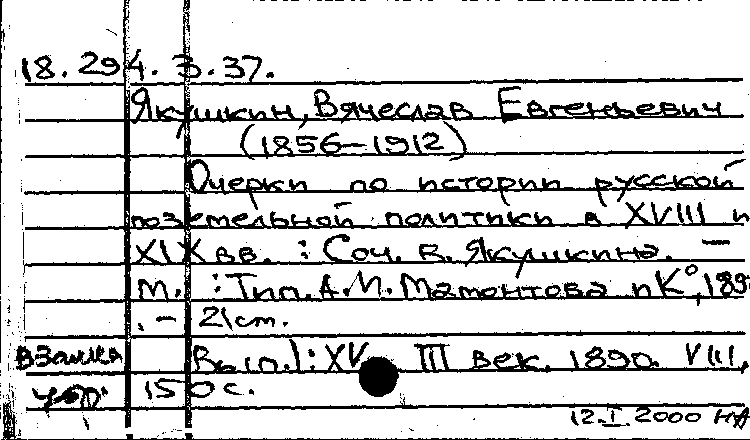 18.294.3.37.
Якушкин, Вячеслав Евгеньевич
(1856-1912)
Очерки по истории русской
поземельной политики в XVIII и
XIX вв. : Соч. В. Якушкина. —
М. : Тип. А.И. Мамонтова и К°, 189
. - 21 cm.
Вып. 1: XV III век. 1890. VIII,
150 с.
12.I.2000